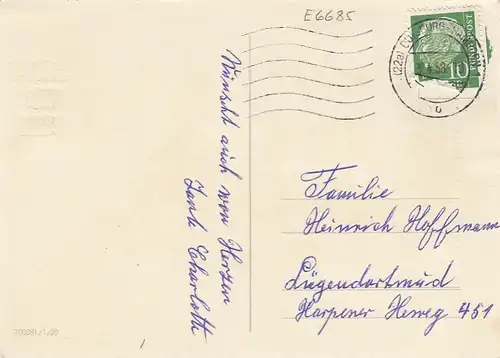 E6685
(22a)
10
Wünscht auch von Herzen
Tante Charlotte
Familie
Heinrich Hoffmann
Lügendortmud
Harpener Heweg 451